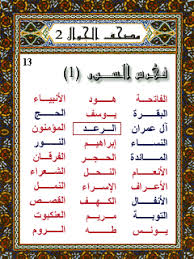 مصحف الجوال 2
13
فهرس السور (1)
الفاتحة هود الأنبياء
البقرة يوسف الحج
آل عمران الرعد المؤمنون
النساء إبراهيم النور
المائدة الحجر الفرقان
الأنعام النحل الشعراء
الأعراف الإسراء النمل
الأنفال الكهف القصص
التوبة مريم العنكبوت
يونس طه الروم